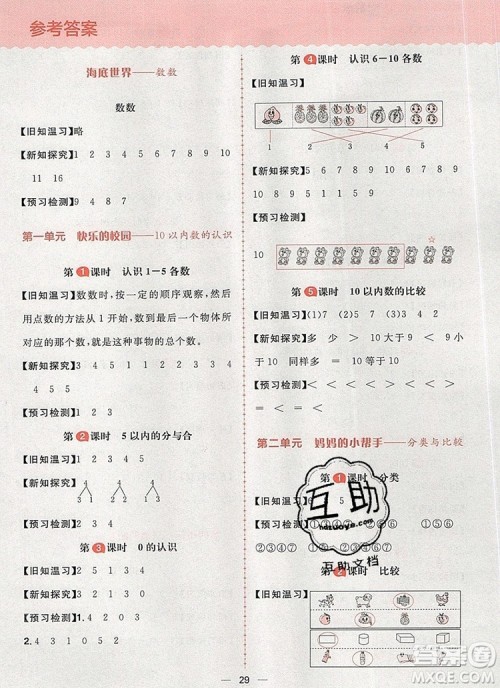 参考答案
海底世界——数数
数数
【旧知温习】略
【新知探究】1 2 3 4 5 6 7 8 9 10
11 16
【预习检测】9 4 8 7
第一单元 快乐的校园——10以内数的认识
第1课时 认识1-5各数
【旧知温习】数数时，按一定的顺序观察，然后
用点数的方法从1开始，数到最后一个物体所
对应的那个数，就是这种事物的总个数。
【新知探究】1 2 3 4 5 1 2 1 3
4 5 4 5
【预习检测】2 5 3 1 4
第2课时 5以内的分与合
【旧知温习】1 2 3 4
【新知探究】4 4 4
1 3 2 2 3 1
【预习检测】4 3 2 1
第3课时 0的认识
【旧知温习】2 5 1 3 4
【新知探究】1 2 3 0 0
【预习检测】1. 4 3 1 2 0
2. 4 3 1 0 5 2
第4课时 认识6-10各数
【旧知温习】
1 2 3 4 5
【新知探究】6 7 6 7 8 9 8 9 10
10
【预习检测】
10
第5课时 10以内数的比较
【旧知温习】(1)7 (2)5 (3)2 (4)9
【新知探究】多 少 > 多 10 < 9 < 10
> 10 同样多 = 10
【预习检测】= > < < < <
> =
第二单元 妈妈的小帮手——分类与比较
第1课时 分类
5
①③④⑦ ②⑤⑥
第2课时 比较
【旧知温习】
互助
hezuoye.com
互助文档
29
答案圈
MXQE.COM